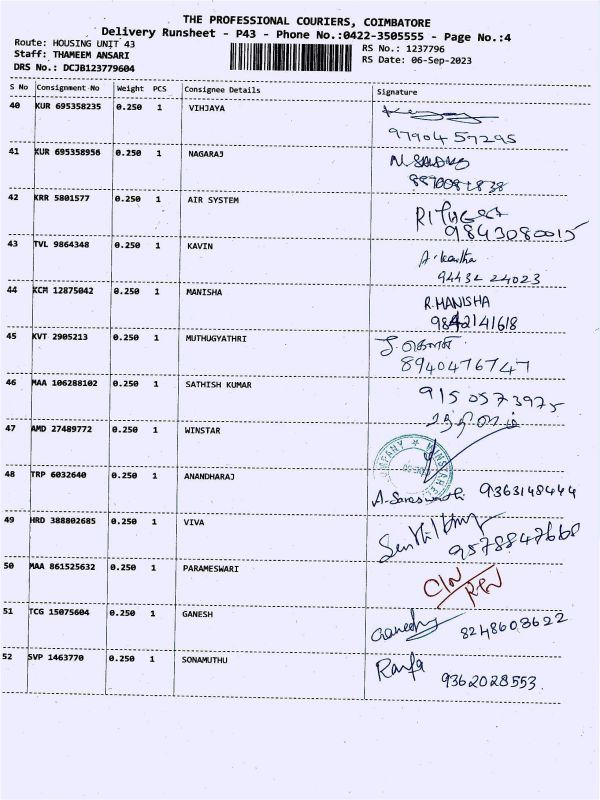 THE PROFESSIONAL COURIERS, COIMBATORE
Delivery Runsheet - P43 - Phone No.:0422-3505555 - Page No.:4
Route: HOUSING UNIT 43
RS No.: 1237796
Staff: THAMEEM ANSARI
RS Date: 06-Sep-2023
DRS No.: DCJB123779604
S No Consignment No Weight PCS Consignee Details Signature
40 KUR 695358235 0.250 1 VIHJAYA
97904 57295
41 KUR 695358956 0.250 1 NAGARAJ
42 KRR 5801577 0.250 1 AIR SYSTEM
9843080015
43 TVL 9864348 0.250 1 KAVIN
94434 24023
44 KCM 12875042 0.250 1 MANISHA R.MANISHA
9842141618
45 KVT 2905213 0.250 1 MUTHUGYATHRI
8940476747
46 MAA 106288102 0.250 1 SATHISH KUMAR
9150573975
47 AMD 27489772 0.250 1 WINSTAR
48 TRP 6032640 0.250 1 ANANDHARAJ
9363148444
49 HRD 388802685 0.250 1 VIVA
9578847668
50 MAA 861525632 0.250 1 PARAMESWARI
51 TCG 15075604 0.250 1 GANESH
8248608622
52 SVP 1463770 0.250 1 SONAMUTHU
9362028553